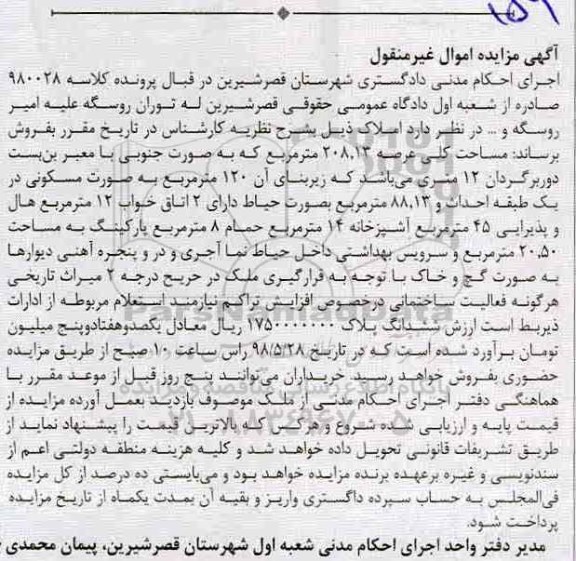 ۱۵۹
آگهی مزایده اموال غیرمنقول
اجرای احکام مدنی دادگستری شهرستان قصرشیرین در قبال پرونده کلاسه ۹۸۰۰۲۸
صادره از شعبه اول دادگاه عمومی حقوقی قصرشیرین له توران روسگه علیه امیر
روسگه و ... در نظر دارد املاک ذیل بشرح نظریه کارشناس در تاریخ مقرر بفروش
برساند: مساحت کلی عرصه ۲۰۸,۱۲ مترمربع که به صورت جنوبی با معبر بن‌بست
دوربرگردان ۱۲ متری می‌باشد که زیربنای آن ۱۲۰ مترمربع به صورت مسکونی در
یک طبقه احداث و ۸۸,۱۳ مترمربع بصورت حیاط دارای ۲ اتاق خواب ۱۲ مترمربع هال
و پذیرایی ۴۵ مترمربع آشپزخانه ۱۴ مترمربع حمام ۸ مترمربع پارکینگ به مساحت
۲۰,۵۰ مترمربع و سرویس بهداشتی داخل حیاط نما آجری و در و پنجره آهنی دیوارها
به صورت گچ و خاک با توجه به قرارگیری ملک در حریم درجه ۲ میراث تاریخی
هرگونه فعالیت ساختمانی درخصوص افزایش تراکم نیازمند استعلام مربوطه از ادارات
ذیربط است ارزش ششدانگ پلاک ۱۷۵۰۰۰۰۰۰۰ ریال معادل یکصدوهفتادوپنج میلیون
تومان برآورد شده است که در تاریخ ۹۸/۵/۲۸ راس ساعت ۱۰ صبح از طریق مزایده
حضوری بفروش خواهد رسید. خریداران می‌توانند پنج روز قبل از موعد مقرر با
هماهنگی دفتر اجرای احکام مدنی از ملک موصوف بازدید بعمل آورده مزایده از
قیمت پایه و ارزیابی شده شروع و هرکس که بالاترین قیمت را پیشنهاد نماید از
طریق تشریفات قانونی تحویل داده خواهد شد و کلیه هزینه منطقه دولتی اعم از
سندنویسی و غیره برعهده برنده مزایده خواهد بود و می‌بایستی ده درصد از کل مزایده
فی‌المجلس به حساب سپرده داگستری واریز و بقیه آن بمدت یکماه از تاریخ مزایده
پرداخت شود.
مدیر دفتر واحد اجرای احکام مدنی شعبه اول شهرستان قصرشیرین، پیمان محمدی
ParsNamadData